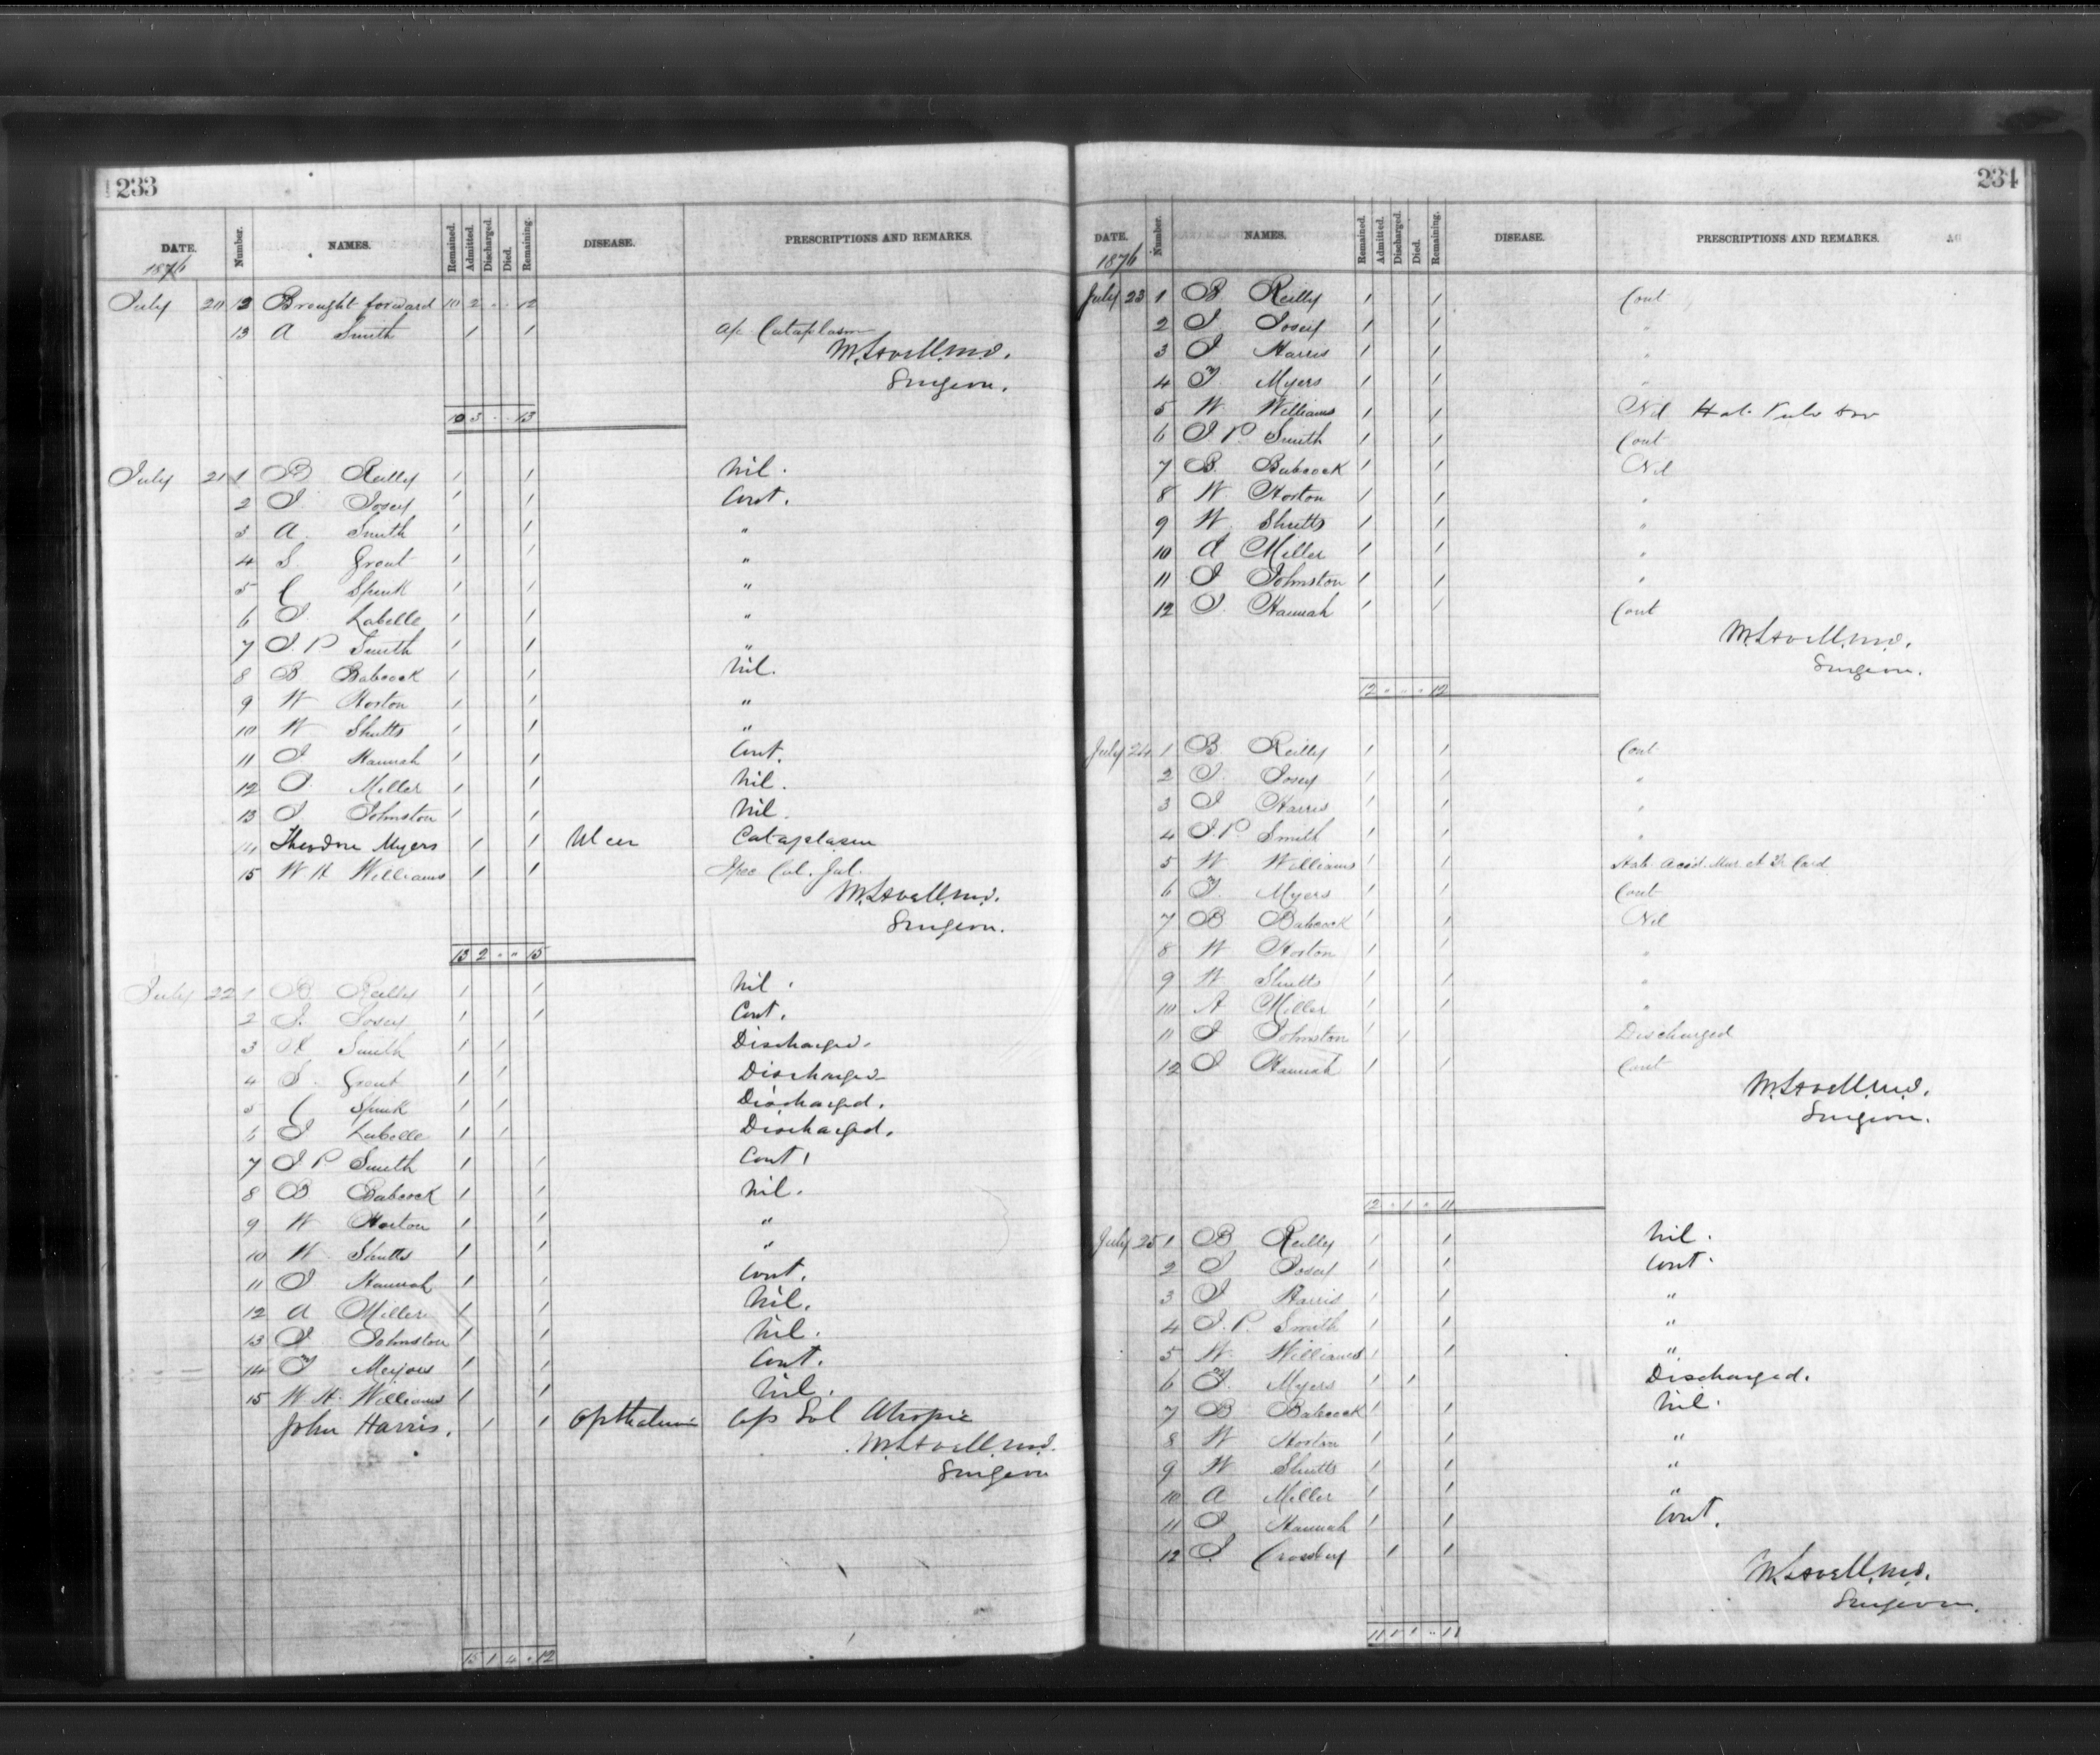 233
DATE. Number. NAMES. Remained. Admitted. Discharged. Died. Remaining. DISEASE. PRESCRIPTIONS AND REMARKS.
1876
July 20 12 Brought forward 10 2 " " 12
13 A Smith 1 1 ap. Cataplasm
Surgeon.
10 3 " " 13
July 21 1 B Reilly 1 1 Nil.
2 J. Josey 1 1 Cont.
3 A. Smith 1 1 "
4 S. Grout 1 1 "
5 C Spink 1 1 "
6 J. Labelle 1 1 "
7 J. P Smith 1 1 "
8 B Babcock 1 1 Nil.
9 W Horton 1 1 "
10 W Shutts 1 1 "
11 J Hannah 1 1 Cont.
12 J. Miller 1 1 Nil.
13 J Johnston 1 1 Nil.
14 Theodore Myers 1 1 Ulcer Cataplasm
15 W H Williams 1 1
Surgeon.
13 2 " " 15
July 22 1 B Reilly 1 1 Nil.
2 J. Josey 1 1 Cont.
3 A Smith 1 1 Discharged.
4 S. Grout 1 1 Discharged
5 C Spink 1 1 Discharged.
6 J Labelle 1 1 Discharged.
7 J P Smith 1 1 Cont.
8 B Babcock 1 1 Nil.
9 W Horton 1 1 "
10 W Shutts 1 1 "
11 J Hannah 1 1 Cont.
12 A Miller 1 1 Nil.
13 J. Johnston 1 1 Nil.
14 T Meyers 1 1 Cont.
15 W H. Williams 1 1 Nil.
John Harris. 1 1 Opthalmia ap Sol Atropie
Surgeon
15 1 4 " 12
234
DATE. Number. NAMES. Remained. Admitted. Discharged. Died. Remaining. DISEASE. PRESCRIPTIONS AND REMARKS.
1876
July 23 1 B Reilly 1 1 Cont
2 J Josey 1 1 "
3 J Harris 1 1 "
4 T Myers 1 1 "
5 W Williams 1 1 Nil Hab. Pulv Dov
6 J P. Smith 1 1 Cont
7 B. Babcock 1 1 Nil
8 W Horton 1 1 "
9 W. Shutts 1 1 "
10 A Miller 1 1 "
11 J Johnston 1 1 "
12 J. Hannah 1 1 Cont
Surgeon.
12 " " " 12
July 24 1 B. Reilly 1 1 Cont
2 J. Josey 1 1 "
3 J Harris 1 1 "
4 J. P. Smith 1 1 "
5 W. Williams 1 1 Hab Acid. Mur et Tr Card
6 T. Myers 1 1 Cont
7 B Babcock 1 1 Nil
8 W Horton 1 1 "
9 W Shutts 1 1 "
10 A. Miller 1 1 "
11 J Johnston 1 1 Discharged
12 J Hannah 1 1 Cont
Surgeon.
12 " 1 " 11
July 25 1 B Reilly 1 1 Nil.
2 J Josey 1 1 Cont.
3 J Harris 1 1 "
4 J. P. Smith 1 1 "
5 W. Williams 1 1 "
6 T. Myers 1 1 Discharged.
7 B Babcock 1 1 Nil.
8 W Horton 1 1 "
9 W Shutts 1 1 "
10 A Miller 1 1 "
11 J Hannah 1 1 Cont.
12 J. Crosbey 1 1
Surgeon.
11 1 1 " 11